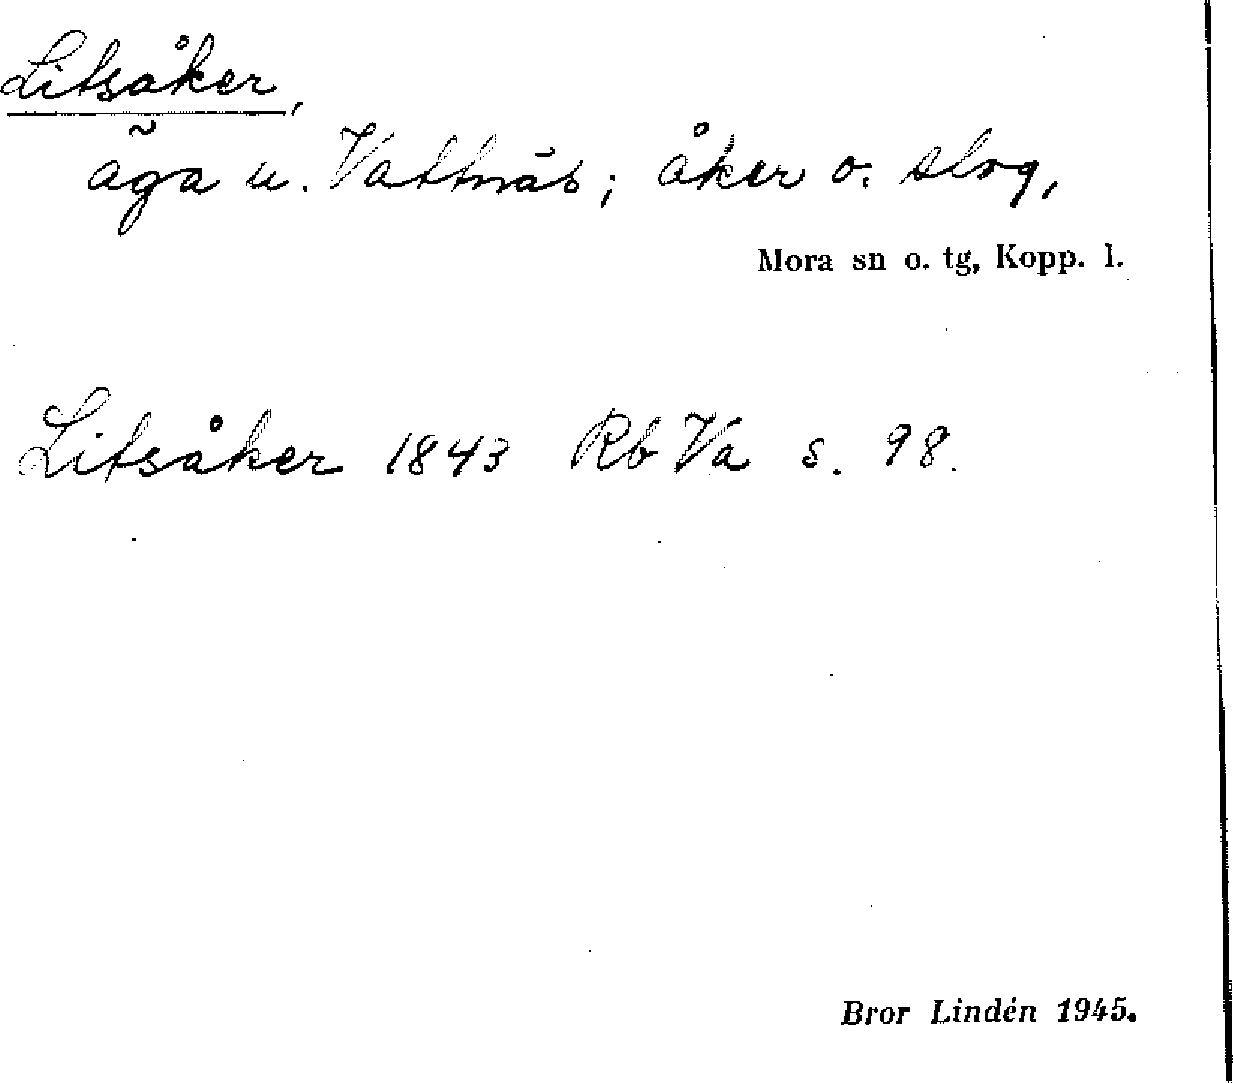 Litsåker,
äga u. Vattnäs; åker o. slog,
Mora sn o. tg, Kopp. l.
Litsåker 1843 Rb Va s. 98.
Bror Lindén 1945.